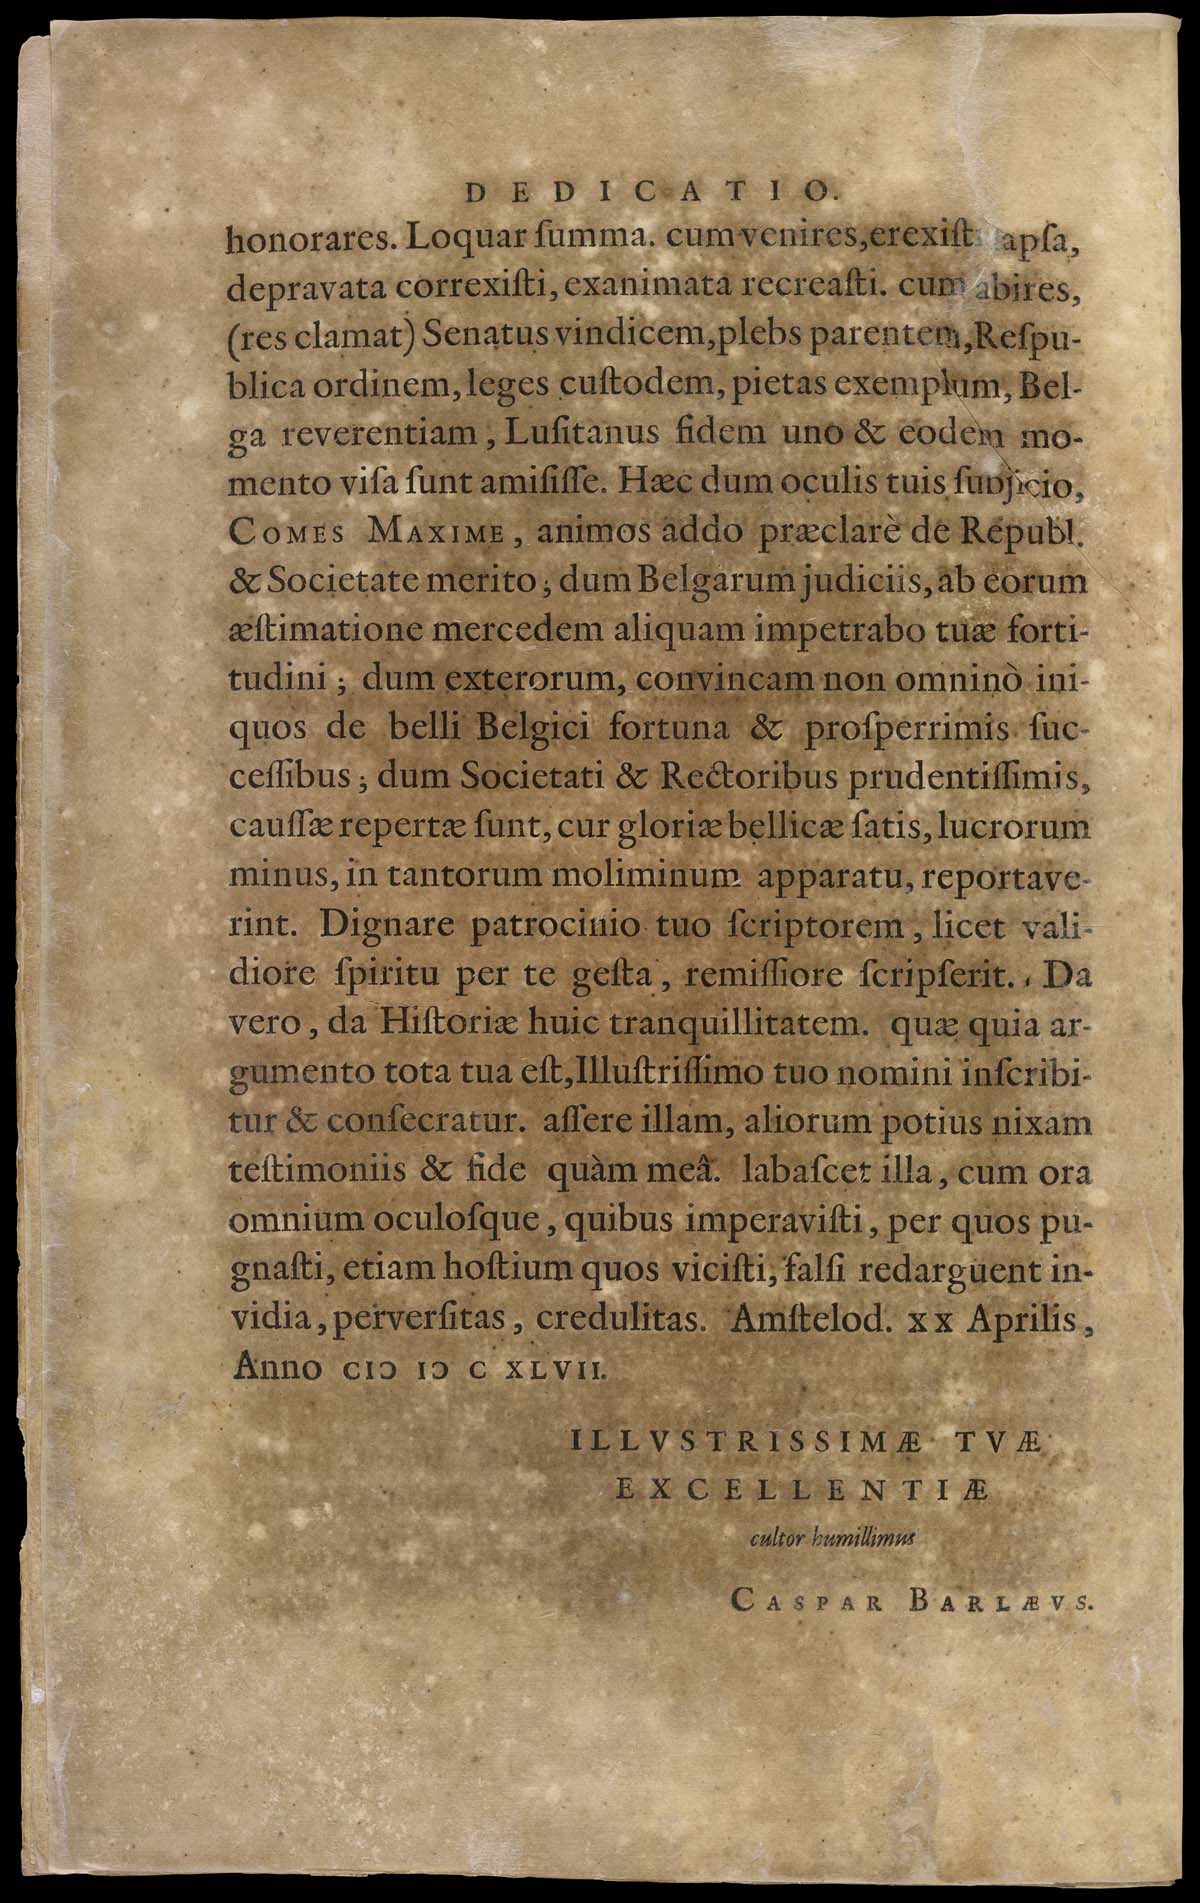 DEDICATIO.
honorares. Loquar ſumma. cum venires, erexiſti lapſa,
depravata correxiſti, exanimata recreaſti. cum abires,
(res clamat) Senatus vindicem, plebs parentem, Reſpu-
blica ordinem, leges cuſtodem, pietas exemplum, Bel-
ga reverentiam, Luſitanus fidem uno & eodem mo-
mento viſa ſunt amiſiſſe. Hæc dum oculis tuis ſubjicio,
COMES MAXIME, animos addo præclarè de Republ.
& Societate merito; dum Belgarum judiciis, ab eorum
æſtimatione mercedem aliquam impetrabo tuæ forti-
tudini; dum exterorum, convincam non omninò ini-
quos de belli Belgici fortuna & proſperrimis ſuc-
ceſſibus; dum Societati & Rectoribus prudentiſſimis,
cauſſæ repertæ ſunt, cur gloriæ bellicæ ſatis, lucrorum
minus, in tantorum moliminum apparatu, reportave-
rint. Dignare patrocinio tuo ſcriptorem, licet vali-
diore ſpiritu per te geſta, remiſſiore ſcripſerit. Da
vero, da Hiſtoriæ huic tranquillitatem. quæ quia ar-
gumento tota tua eſt, Illuſtriſſimo tuo nomini inſcribi-
tur & conſecratur. aſſere illam, aliorum potius nixam
teſtimoniis & fide quàm meâ. labaſcet illa, cum ora
omnium oculoſque, quibus imperaviſti, per quos pu-
gnaſti, etiam hoſtium quos viciſti, falſi redarguent in-
vidia, perverſitas, credulitas. Amſtelod. XX Aprilis,
Anno CIↃ IↃ C XLVII.
ILLVSTRISSIMÆ TVÆ
EXCELLENTIÆ
cultor humillimus
CASPAR BARLÆVS.